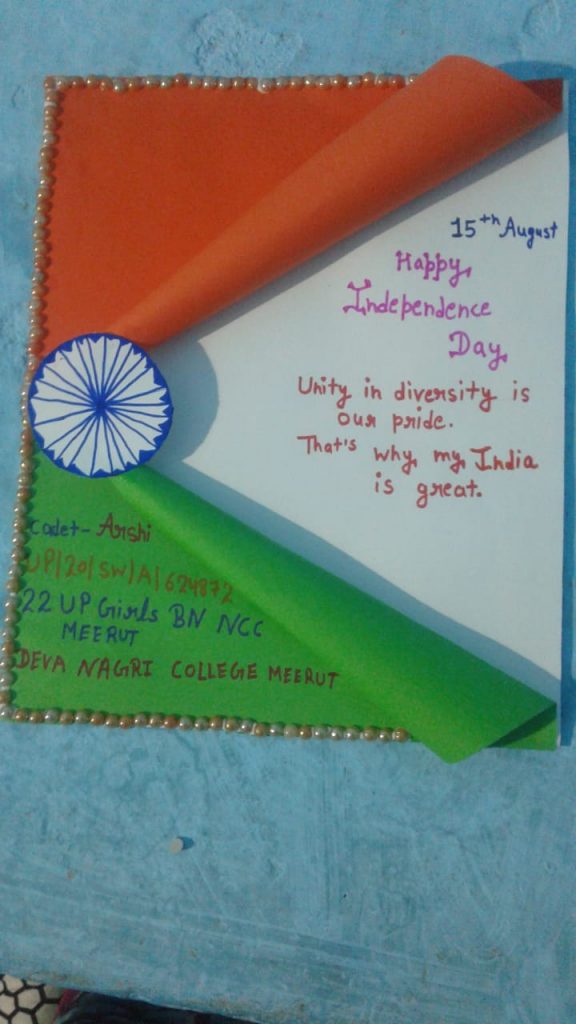 15th August
Happy
Independence
Day
Unity in diversity is
our pride.
That's why my India
is great.
Cadet- Arshi
UP/20/SW/A/624872
22 UP Girls BN NCC
MEERUT
DEVA NAGRI COLLEGE MEERUT